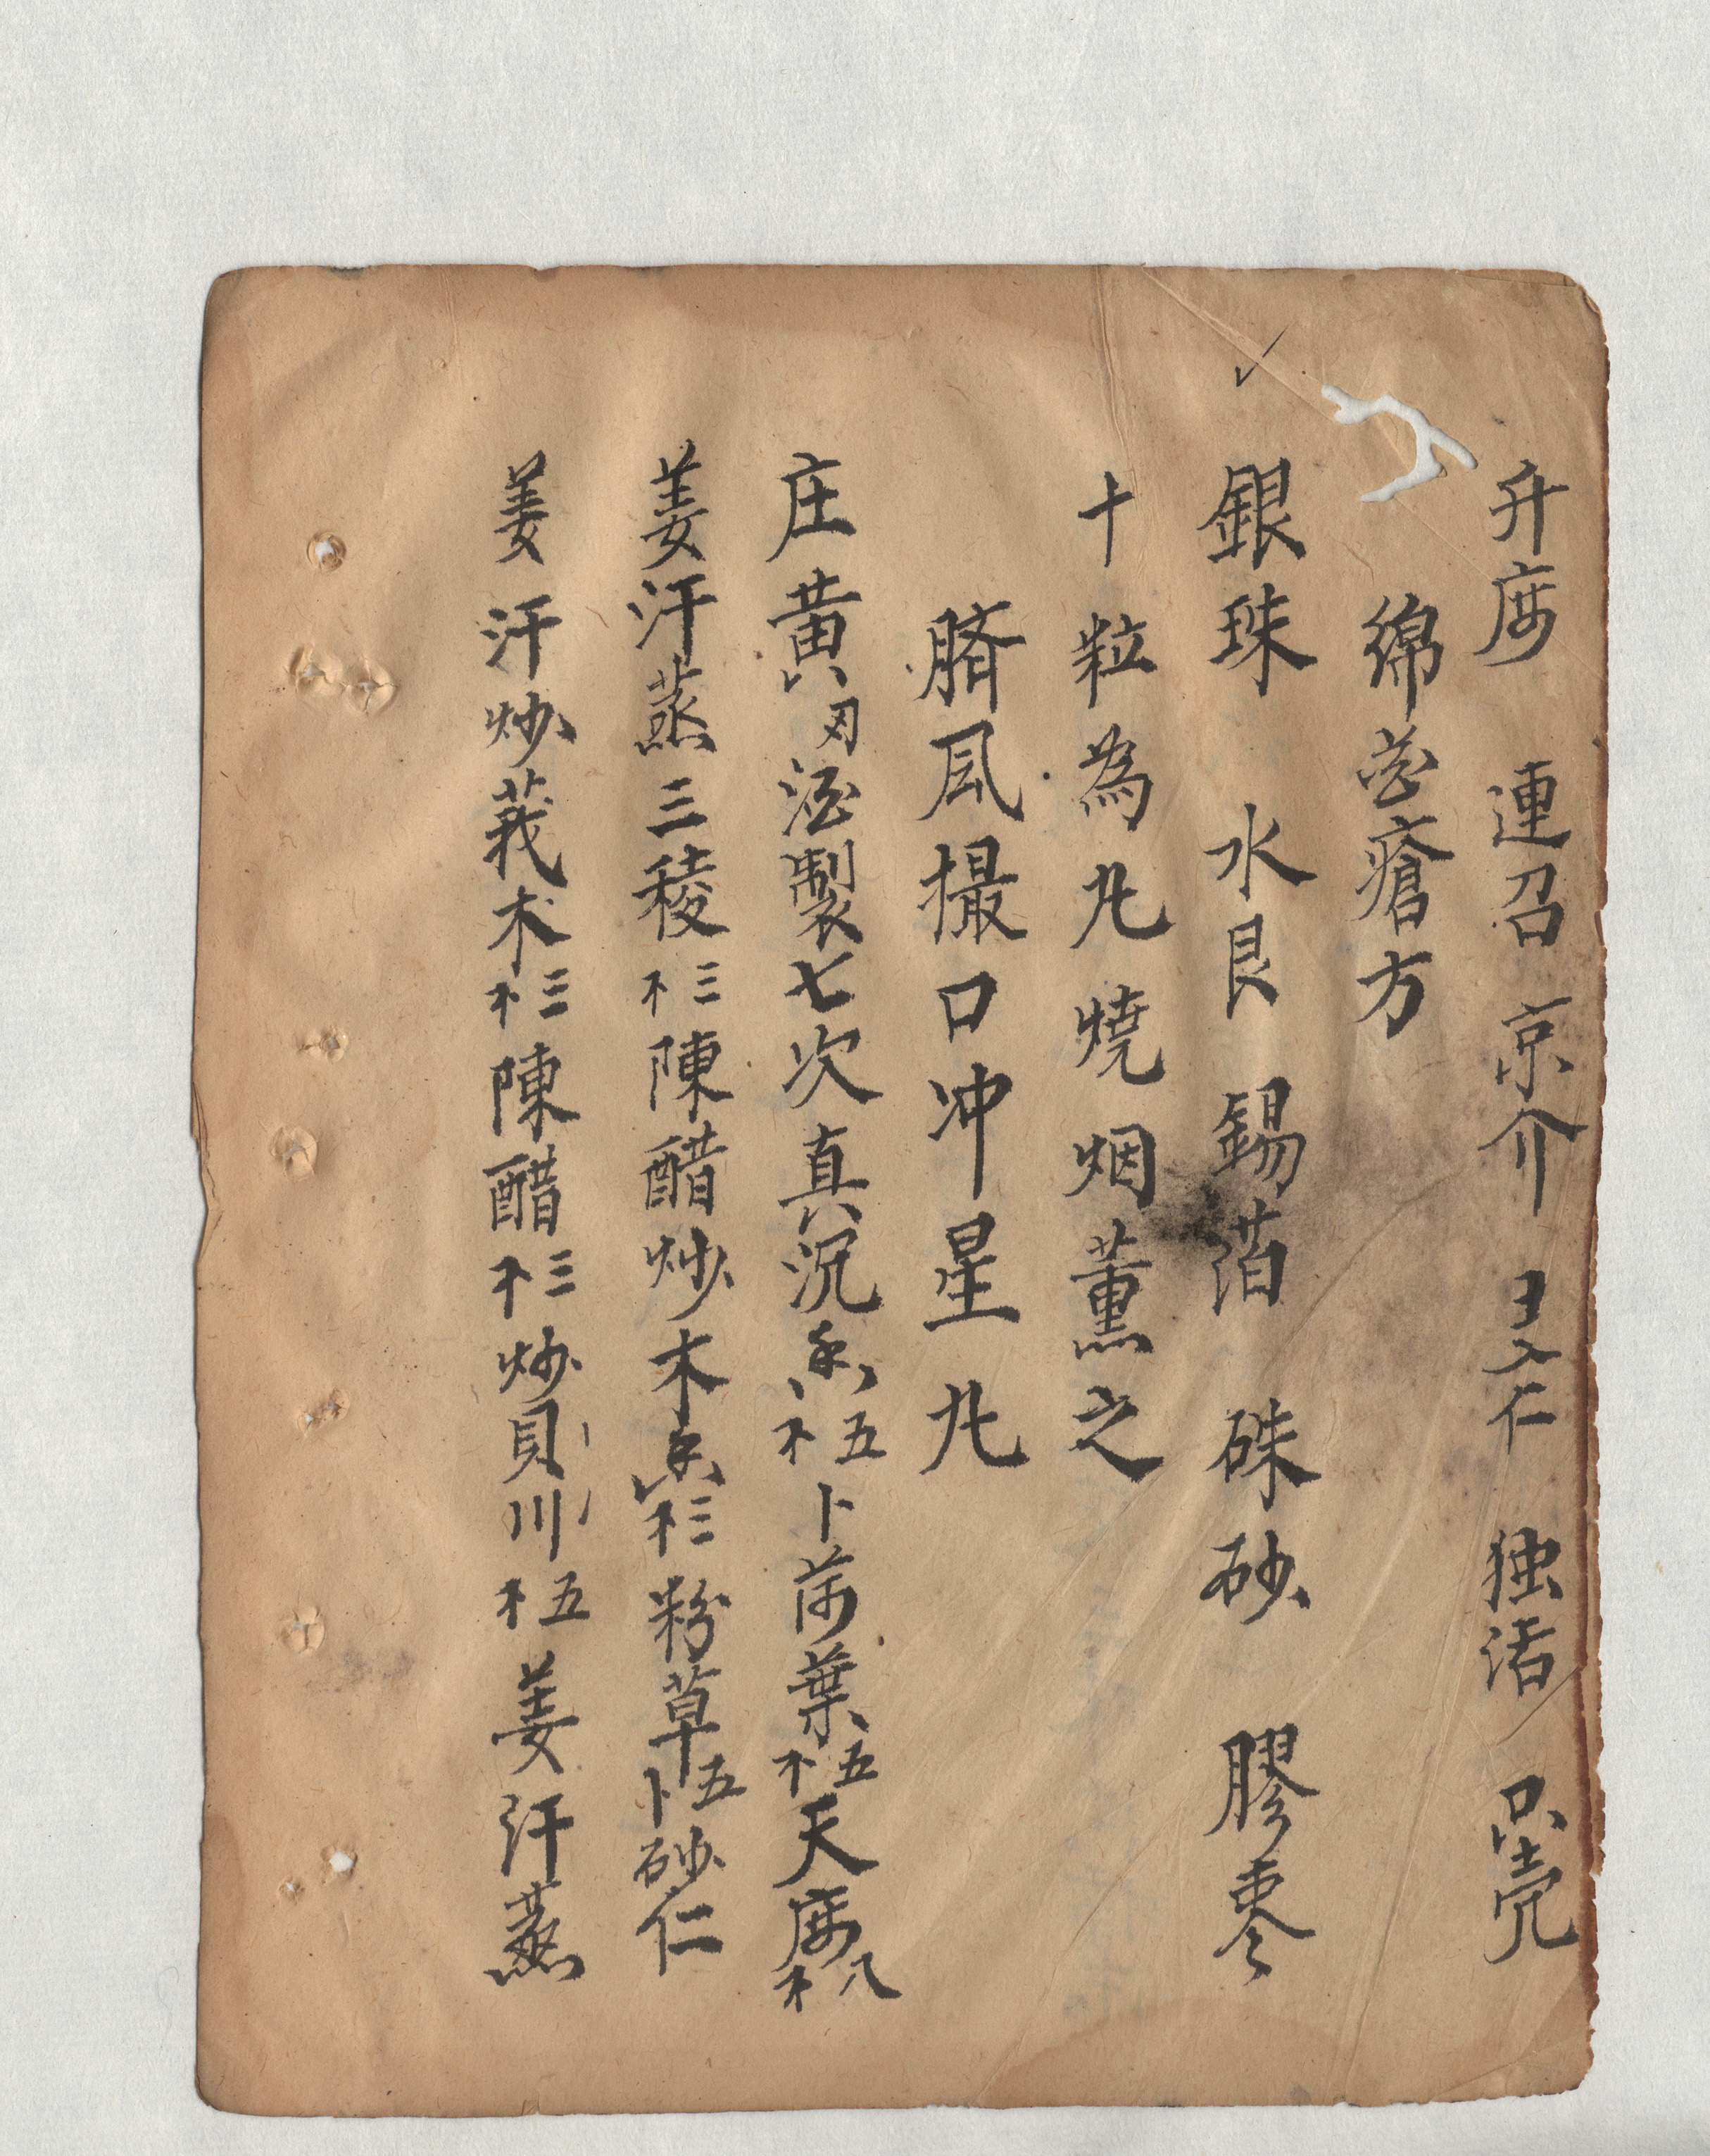 升庅 連召 京介 旻仁 独活 只壳
綿花瘡方
銀珠 水艮 錫萡 硃砂 膠枣
十粒為凢燒烟薰之
臍風撮口冲星凢
庄黄刄酒製七次真沉香五卜荷葉五天庅八
姜汗蒸三稜三陳醋炒木香三粉草五卜砂仁
姜汗炒莪术三陳醋三炒貝川五姜汗蒸